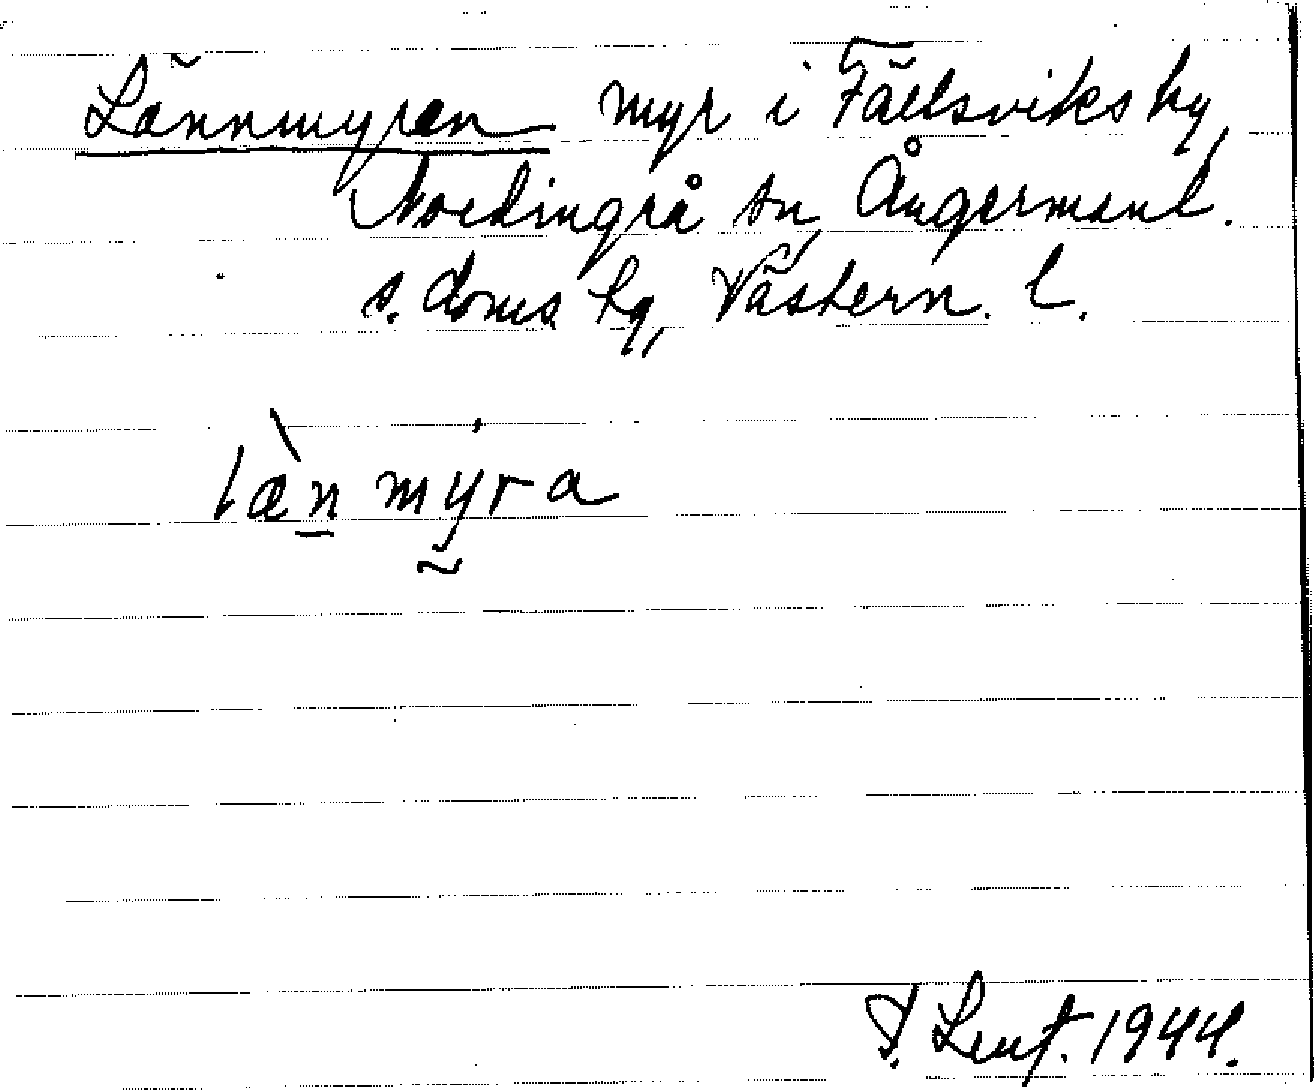 Lännmyren myr i Fällsviks by,
Nordingrå sn, Ångermanl.
s. doms hg, Västern. l.
læ̀n mýra
1944.